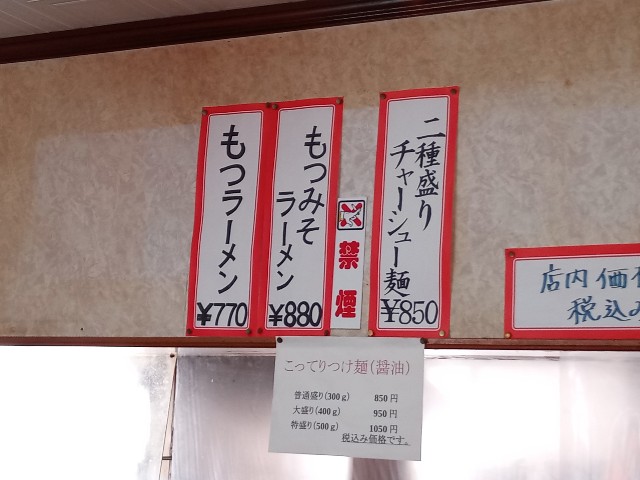 もつラーメン
¥770
もつみそ
ラーメン
¥880
禁煙
二種盛り
チャーシュー麺
¥850
店内価
税込み
こってりつけ麺(醤油)
普通盛り(300g) 850円
大盛り(400g) 950円
特盛り(500g) 1050円
税込み価格です。